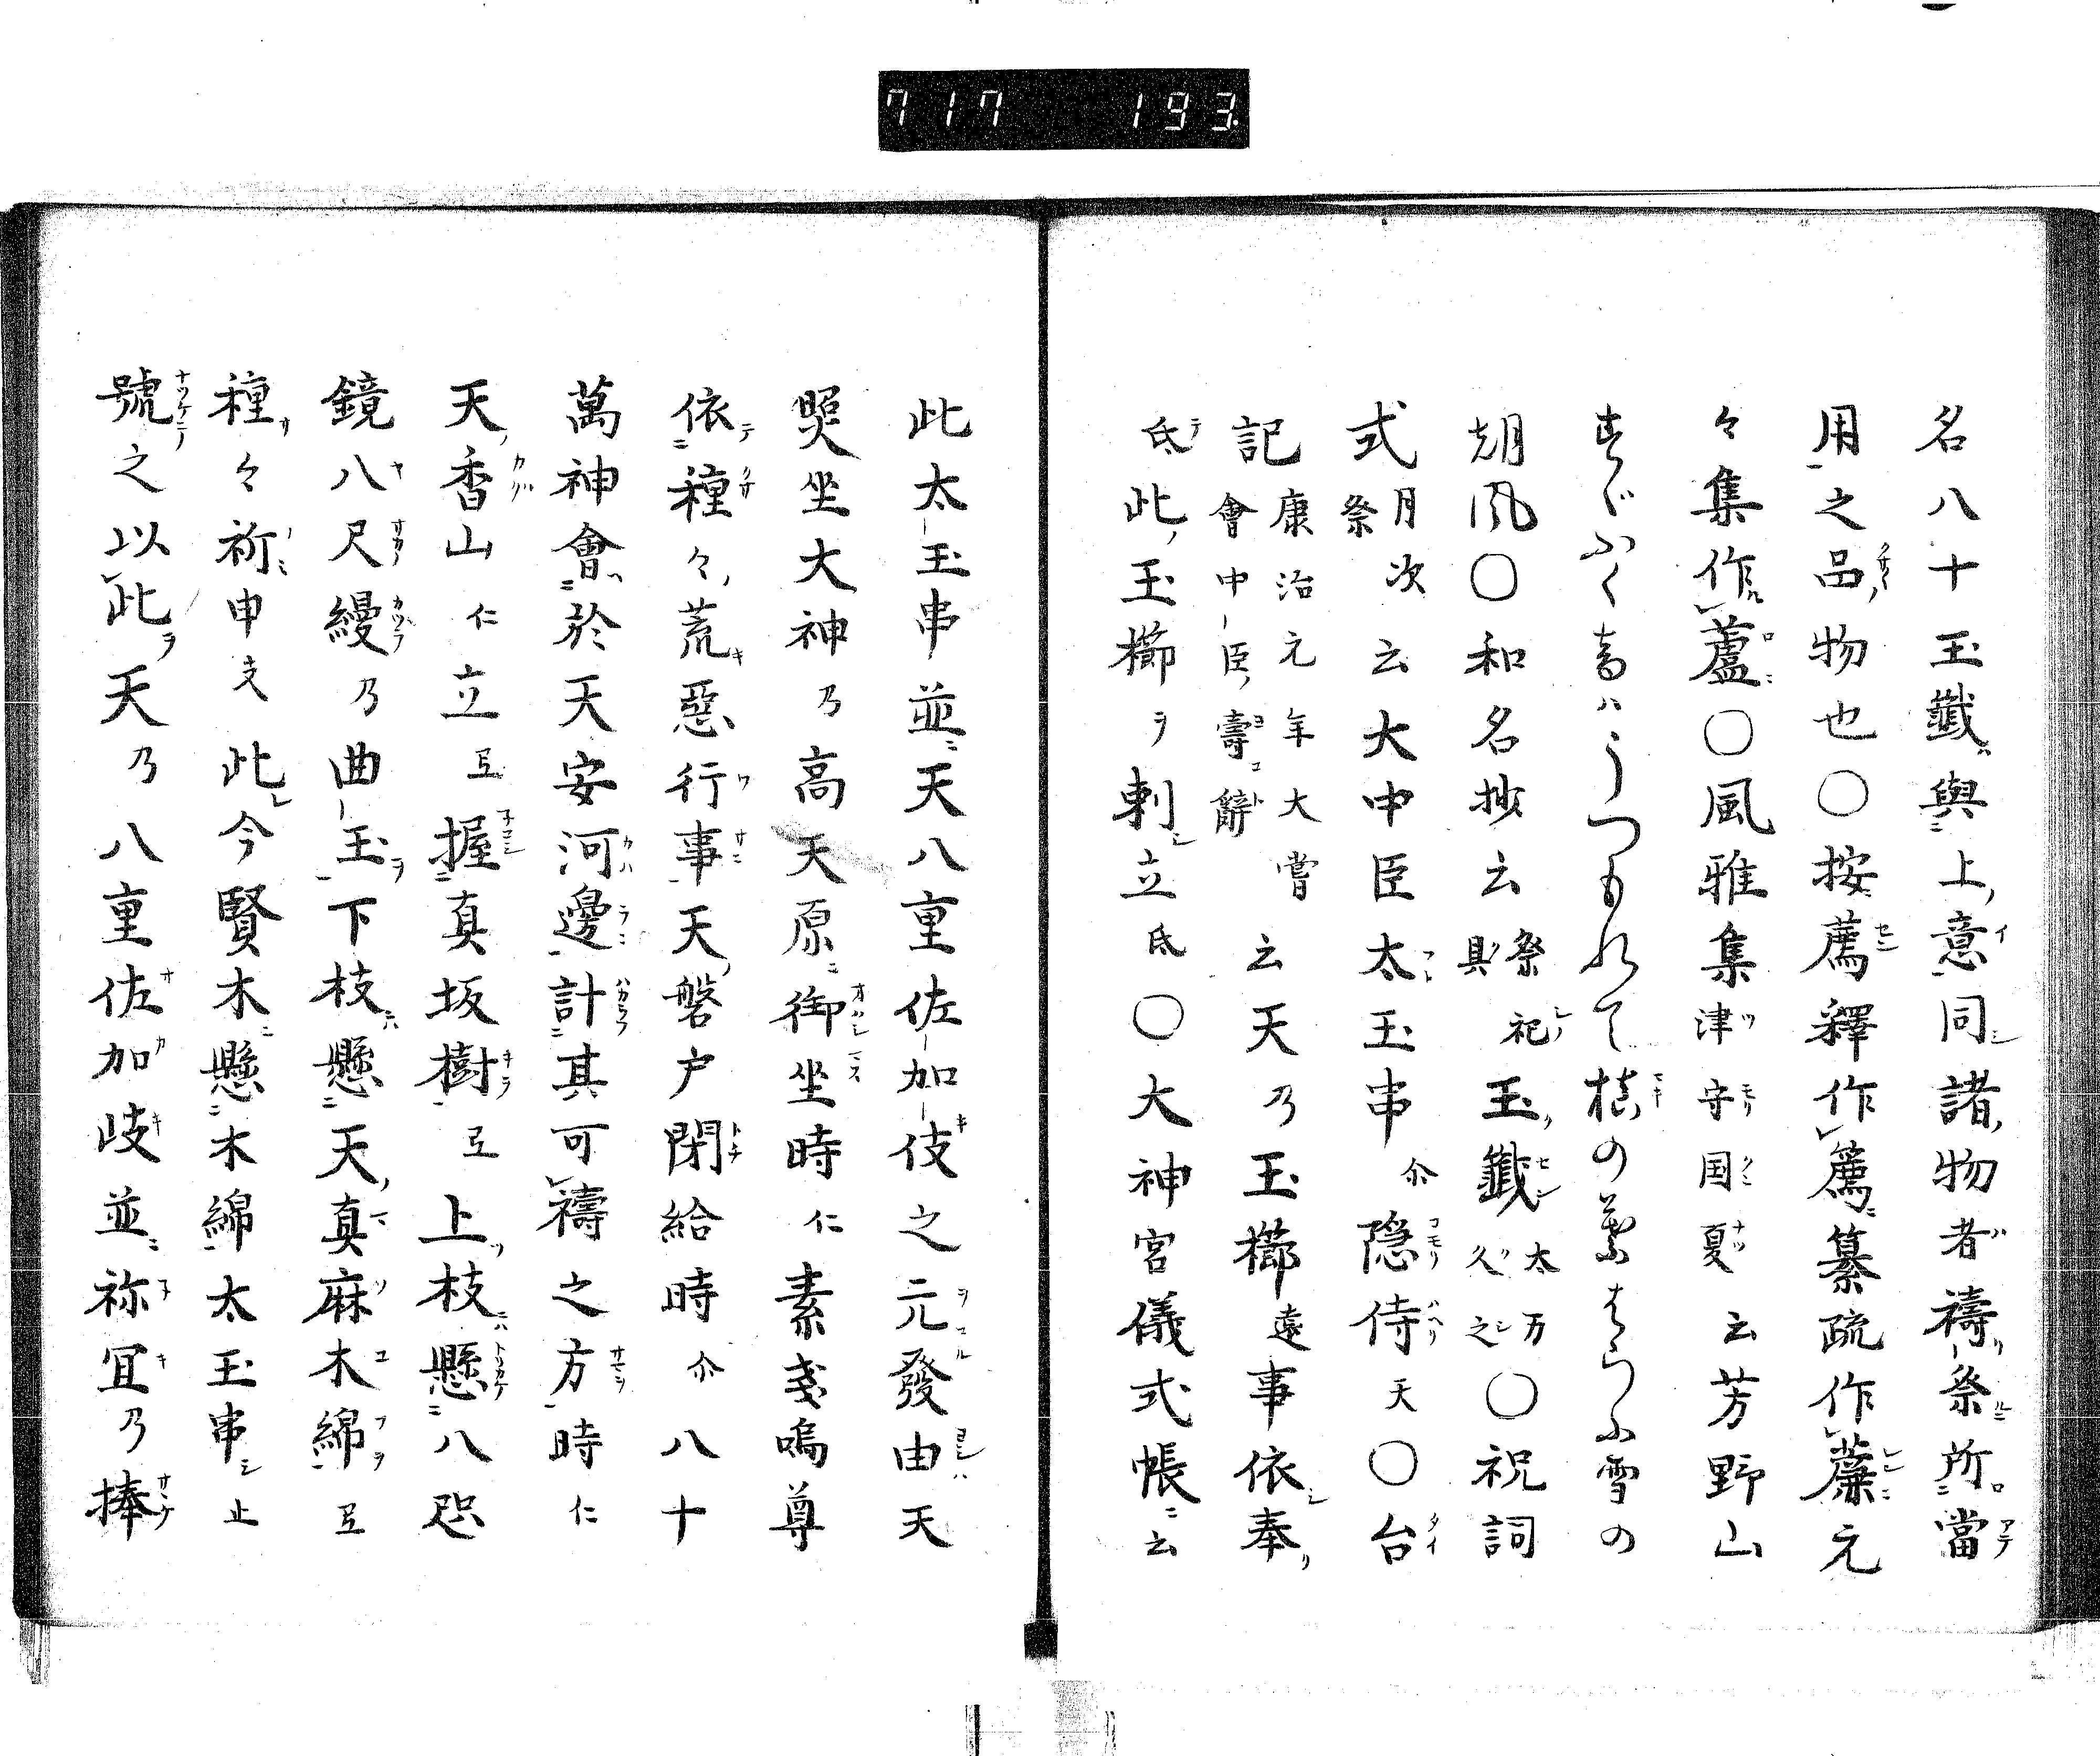 717 193
名八十玉籤與上意同諸物者禱祭所當
用之品物也〇按薦釋作篶纂疏作薕元
々集作蘆〇風雅集津守国夏云芳野山
峯ハうつもれて槙の葉はらふ雪の
朝風〇和名抄云祭祀具玉籤太万久之〇祝詞
式月次祭云大中臣太玉串尓隠侍天〇台
記康治元年大嘗會中臣壽辭云天乃玉櫛遠事依奉
氐此玉櫛ヲ刺立氐〇大神宮儀式帳云
此太玉串並天八重佐加伎之元發由天
照坐大神乃高天原御坐時仁素戔嗚尊
依種々荒惡行事天磐戸閉給時尓八十
萬神會於天安河邊計其可禱之方時仁
天香山仁立弖握真坂樹弖上枝懸八咫
鏡八尺縵乃曲玉下枝懸天真麻木綿弖
種々祈申支此今賢木懸木綿太玉串止
號之以此天乃八重佐加岐並祢宜乃捧